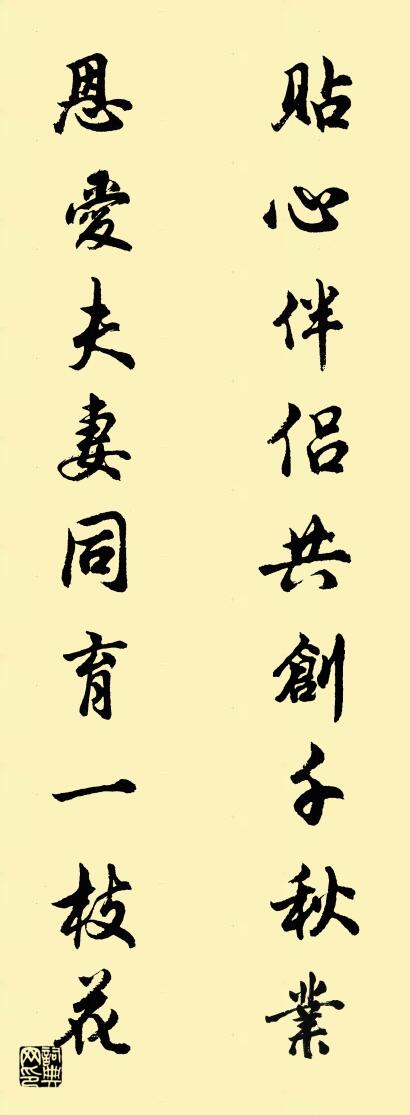 貼心伴侶共創千秋業
恩愛夫妻同育一枝花
詞典網印